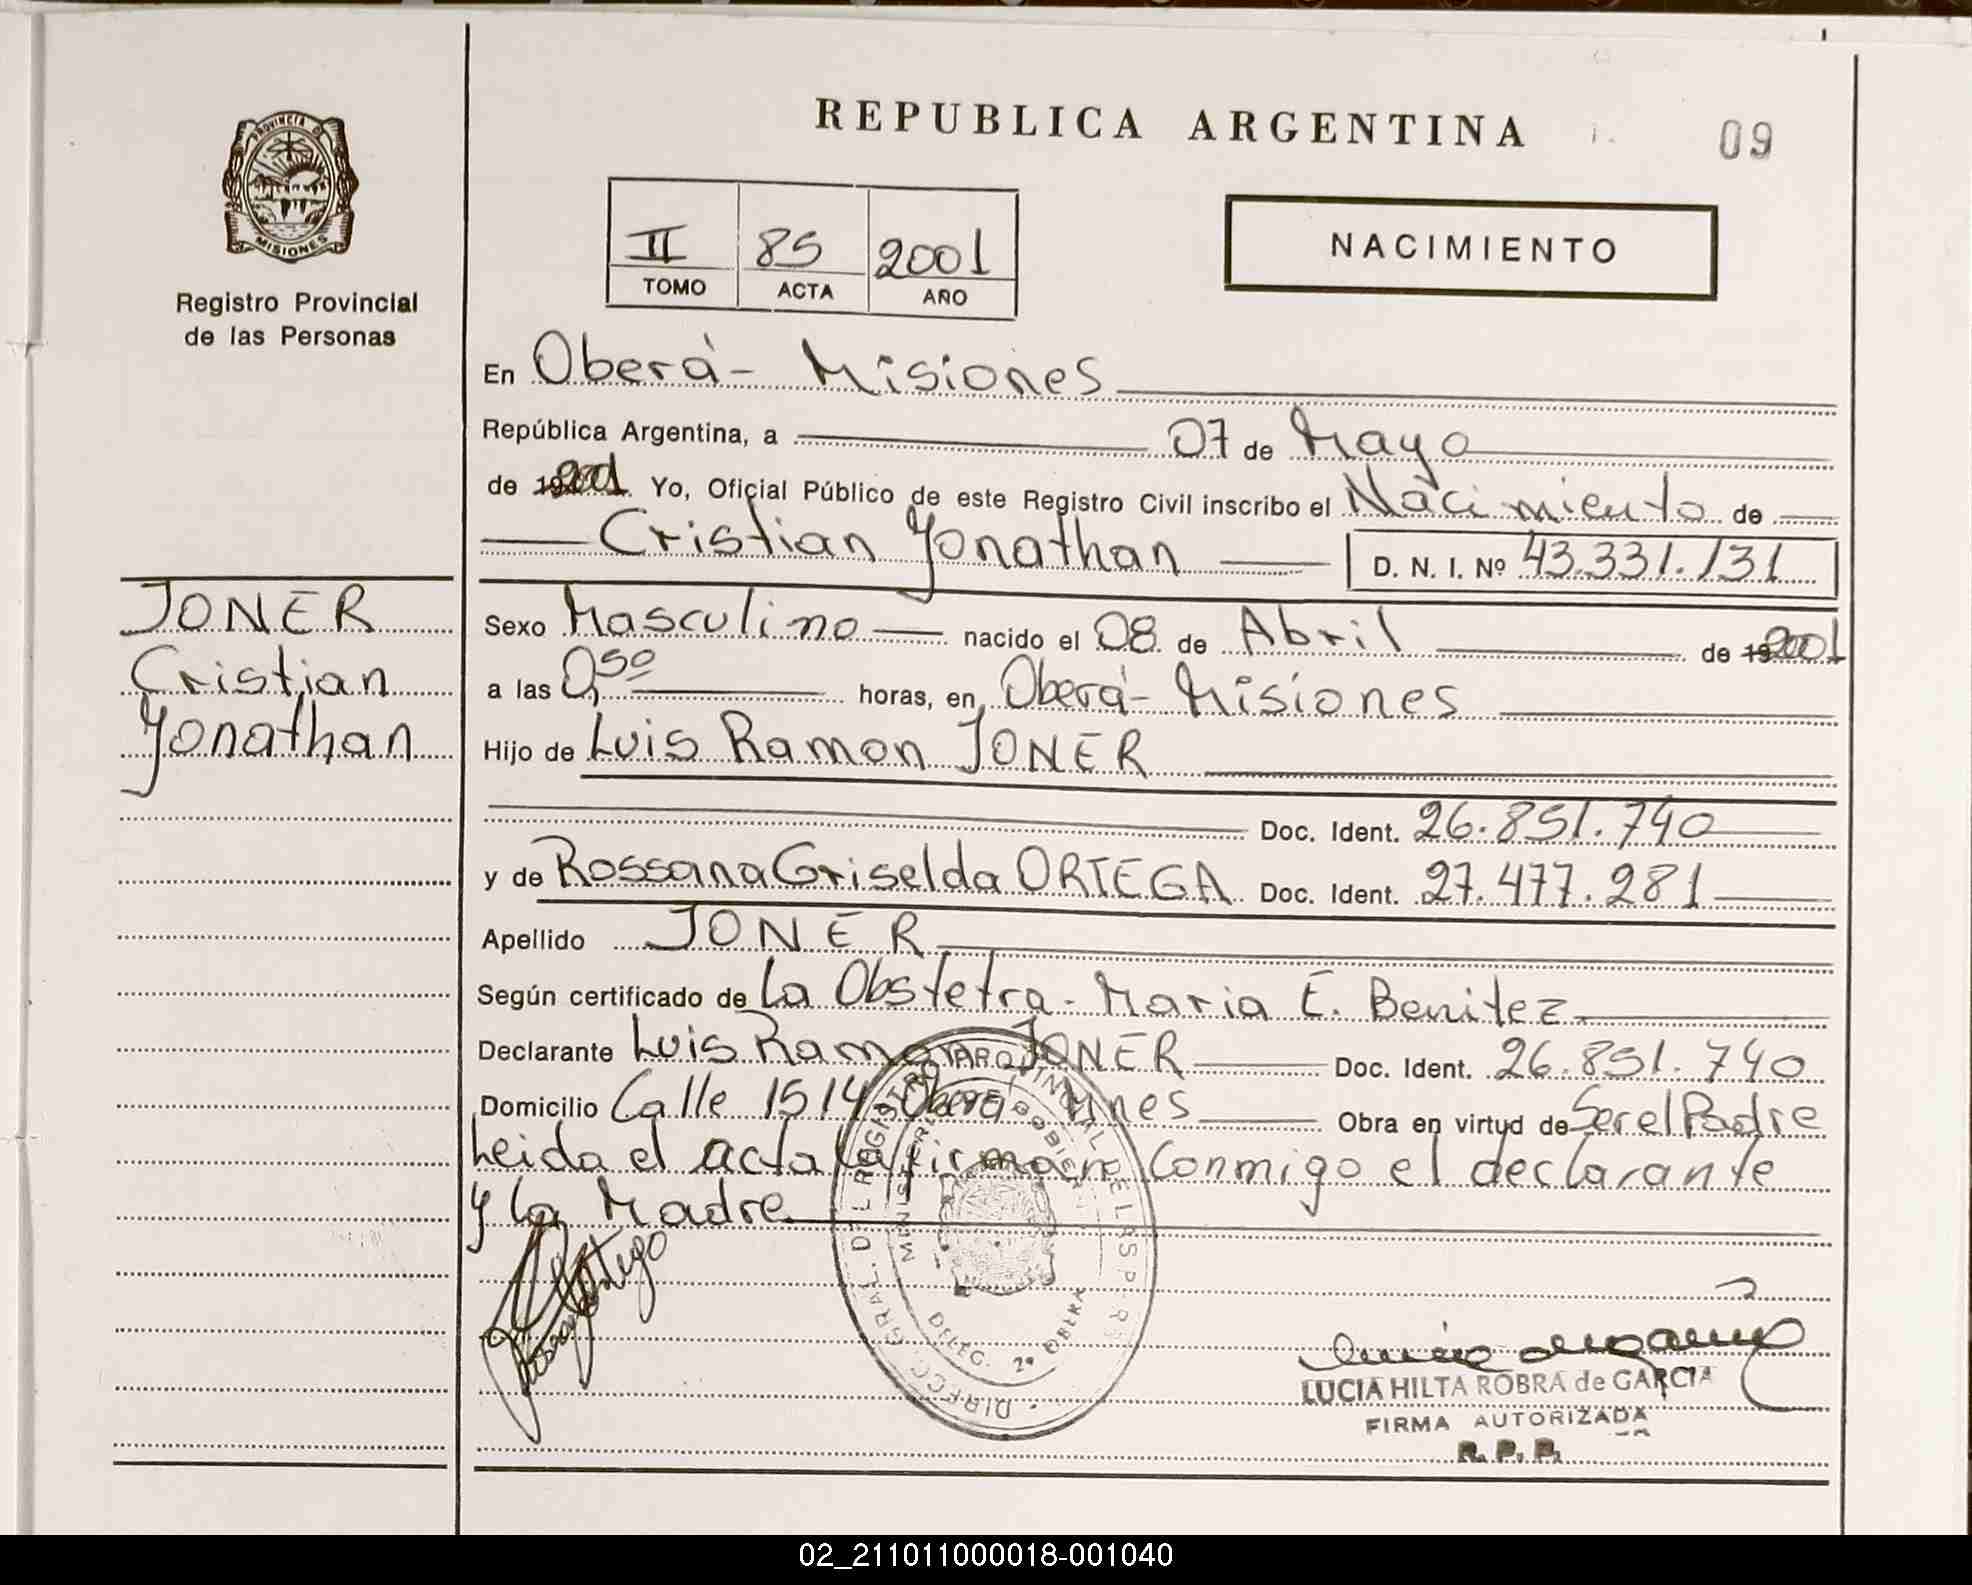 REPUBLICA ARGENTINA
09
PROVINCIA D
MISIONES
Registro Provincial
de las Personas
II 85 2001
TOMO ACTA AÑO
NACIMIENTO
En Oberá - Misiones
República Argentina, a 07 de Mayo
de 2001 Yo, Oficial Público de este Registro Civil inscribo el Nacimiento de
Cristian Yonathan D. N. I. Nº 43.331.131
JONER
Cristian
Yonathan
Sexo Masculino nacido el 08 de Abril de 2001
a las 0,50 horas, en Oberá - Misiones
Hijo de Luis Ramon JONER
Doc. Ident. 26.851.740
y de Rossana Griselda ORTEGA Doc. Ident. 27.477.281
Apellido JONER
Según certificado de La Obstetra - Maria E. Benitez
Declarante Luis Ramon JONER Doc. Ident. 26.851.740
Domicilio Calle 1514 - Oberá, Mnes Obra en virtud de Ser el Padre
Leida el acta la firman Conmigo el declarante
y la Madre
DELEG. 2ª OBERA
LUCIA HILTA ROBRA de GARCIA
FIRMA AUTORIZADA
R. P. P.
02_211011000018-001040